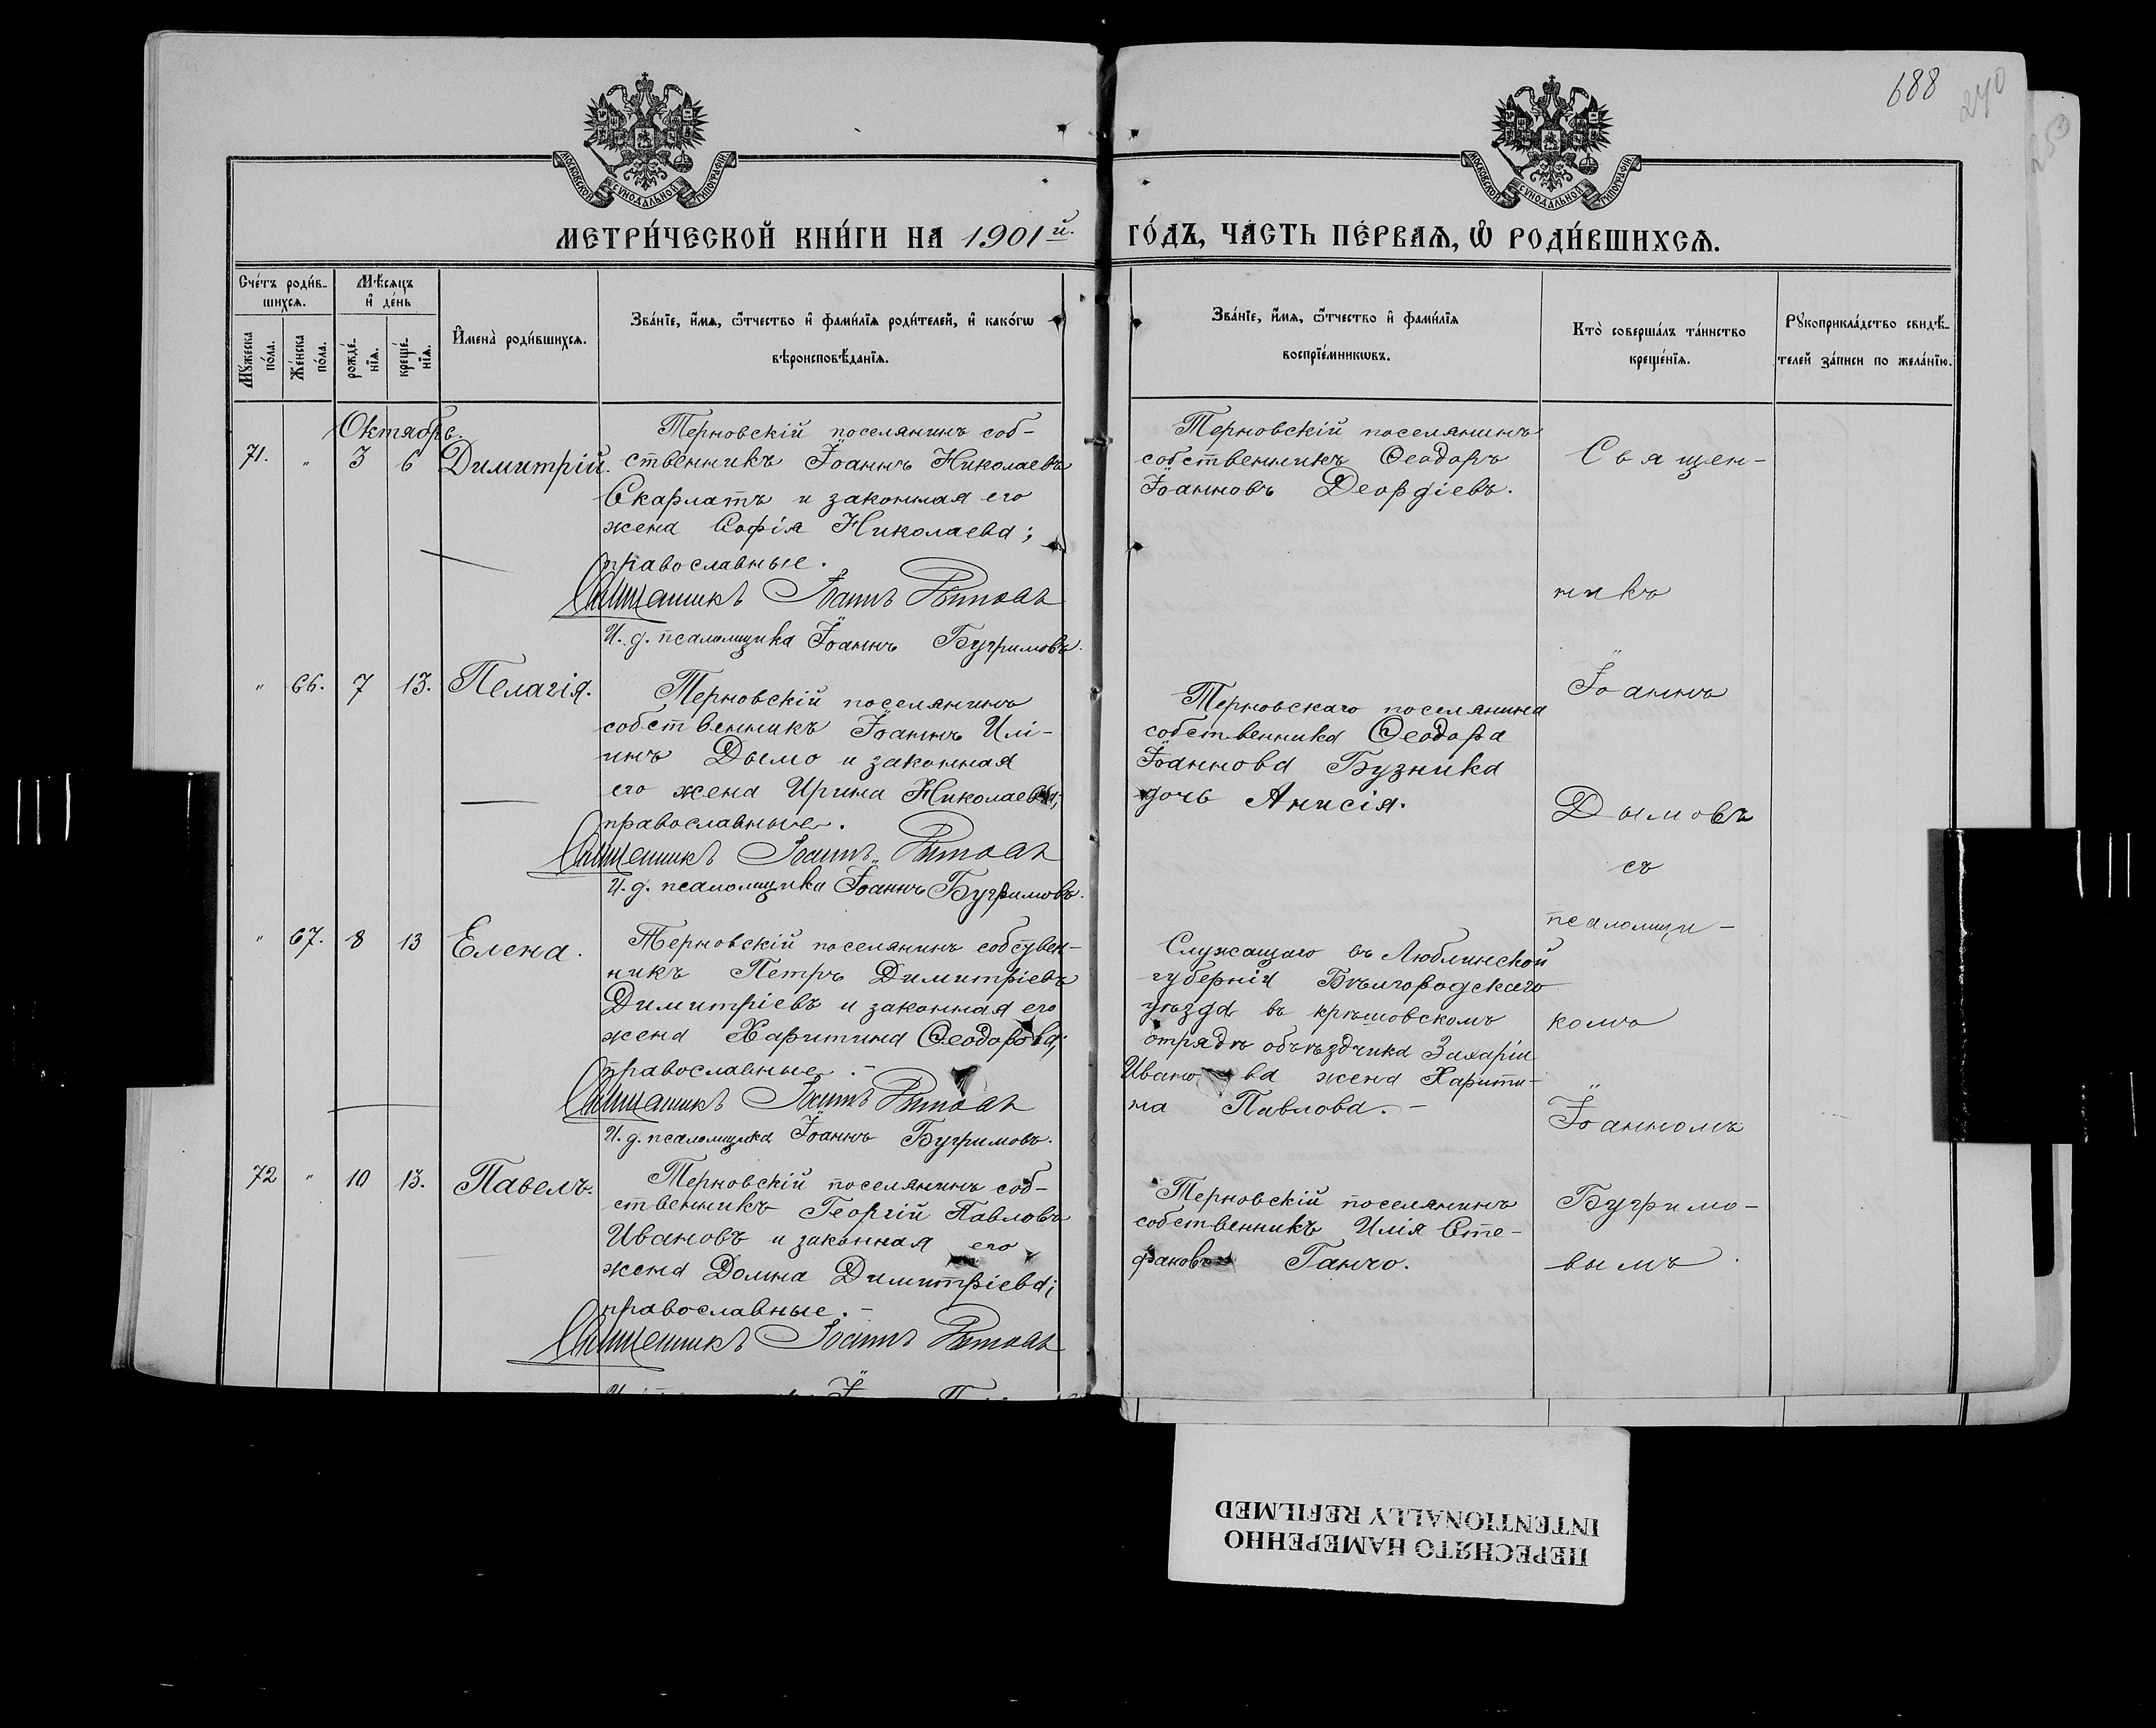 688
240
250
МОСКОВСКОЙ СѴНОДАЛЬНОЙ ТИПОГРАФІИ
МОСКОВСКОЙ СѴНОДАЛЬНОЙ ТИПОГРАФІИ
МЕТРИ́ЧЕСКОЙ КНИ́ГИ НА 1901й. ГО́ДЪ, ЧА́СТЬ ПЕ́РВАѦ, Ѡ҆ РОДИ́ВШИХСѦ.
Сче́тъ роди́в-
шихсѧ.
Мѣ́сѧцъ
и҆ де́нь
Мꙋ́жеска
по́ла.
Же́нска
по́ла.
рожде́-
нїѧ.
креще́-
нїѧ.
И҆мена̀ роди́вшихсѧ.
Зва́нїе, и҆́мѧ, ѻ҆́тчество и҆ фами́лїѧ роди́телей, и҆ како́гѡ
вѣроисповѣ́данїѧ.
Зва́нїе, и҆́мѧ, ѻ҆́тчество и҆ фами́лїѧ
воспрїе́мникѡвъ.
Кто̀ соверша́лъ та́инство
креще́нїѧ.
Рꙋкоприкла́дство свидѣ́-
телей за́писи по жела́нїю.
Октябрь.
71. " 3 6 Димитрій.
Терновскій поселянинъ соб-
ственникъ Іоаннъ Николаевъ
Скарлатъ и законная его
жена Софія Николаева;
православные.
Священникъ Іоаннъ Дымовъ
И. д. псаломщика Іоаннъ Бугримовъ.
Терновскій поселянинъ
собственникъ Ѳеодоръ
Іоанновъ Деордіевъ.
" 66. 7 13. Пелагія.
Терновскій поселянинъ
собственникъ Іоаннъ Илі-
инъ Дымо и законная
его жена Ирина Николаева;
православные.
Священникъ Іоаннъ Дымовъ
И. д. псаломщика Іоаннъ Бугримовъ.
Терновскаго поселянина
собственника Ѳеодора
Іоаннова Бузника
дочь Анисія.
" 67. 8 13 Елена.
Терновскій поселянинъ собствен-
никъ Петръ Димитріевъ
Димитріевъ и законная его
жена Харитина Ѳеодорова;
православные.-
Священникъ Іоаннъ Дымовъ
И. д. псаломщика Іоаннъ Бугримовъ.
Служащаго въ Люблинской
губерніи Бѣлгородскаго
уѣзда въ крѣшовскомъ
отрядѣ объѣздчика Захаріи
Иванова жена Харити-
на Павлова.-
72 " 10 13. Павелъ.
Терновскій поселянинъ соб-
ственникъ Георгій Павловъ
Ивановъ и законная его
жена Домна Димитріева;
православные.-
Священникъ Іоаннъ Дымовъ
Терновскій поселянинъ
собственникъ Илія Сте-
фановъ Ганчо.
Священ-
никъ
Іоаннъ
Дымовъ
съ
псаломщи-
комъ
Іоанномъ
Бугримо-
вымъ.
ПЕРЕСНЯТО НАМЕРЕННО
INTENTIONALLY REFILMED